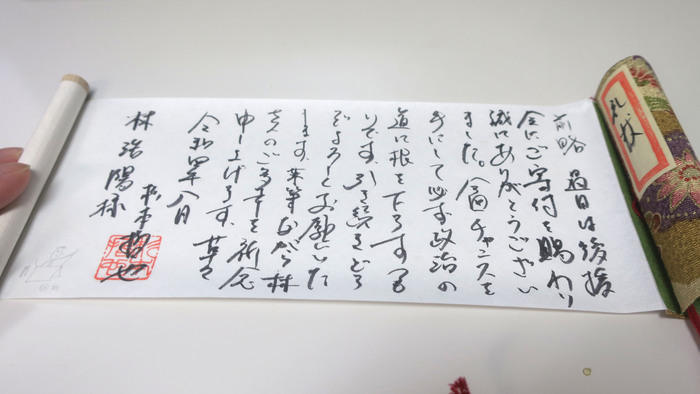 礼状
前略 過日は後援
会にご寄付を賜わり
誠にありがとうござい
ました。今回チャンスを
手にして必ず政治の
道に根を下ろすつも
りです。引き続きどう
ぞよろしくお願いいた
します。末筆ながら林
さんのご多幸を祈念
申し上げます。草々
令和四年八月
松本哲也
林治陽様